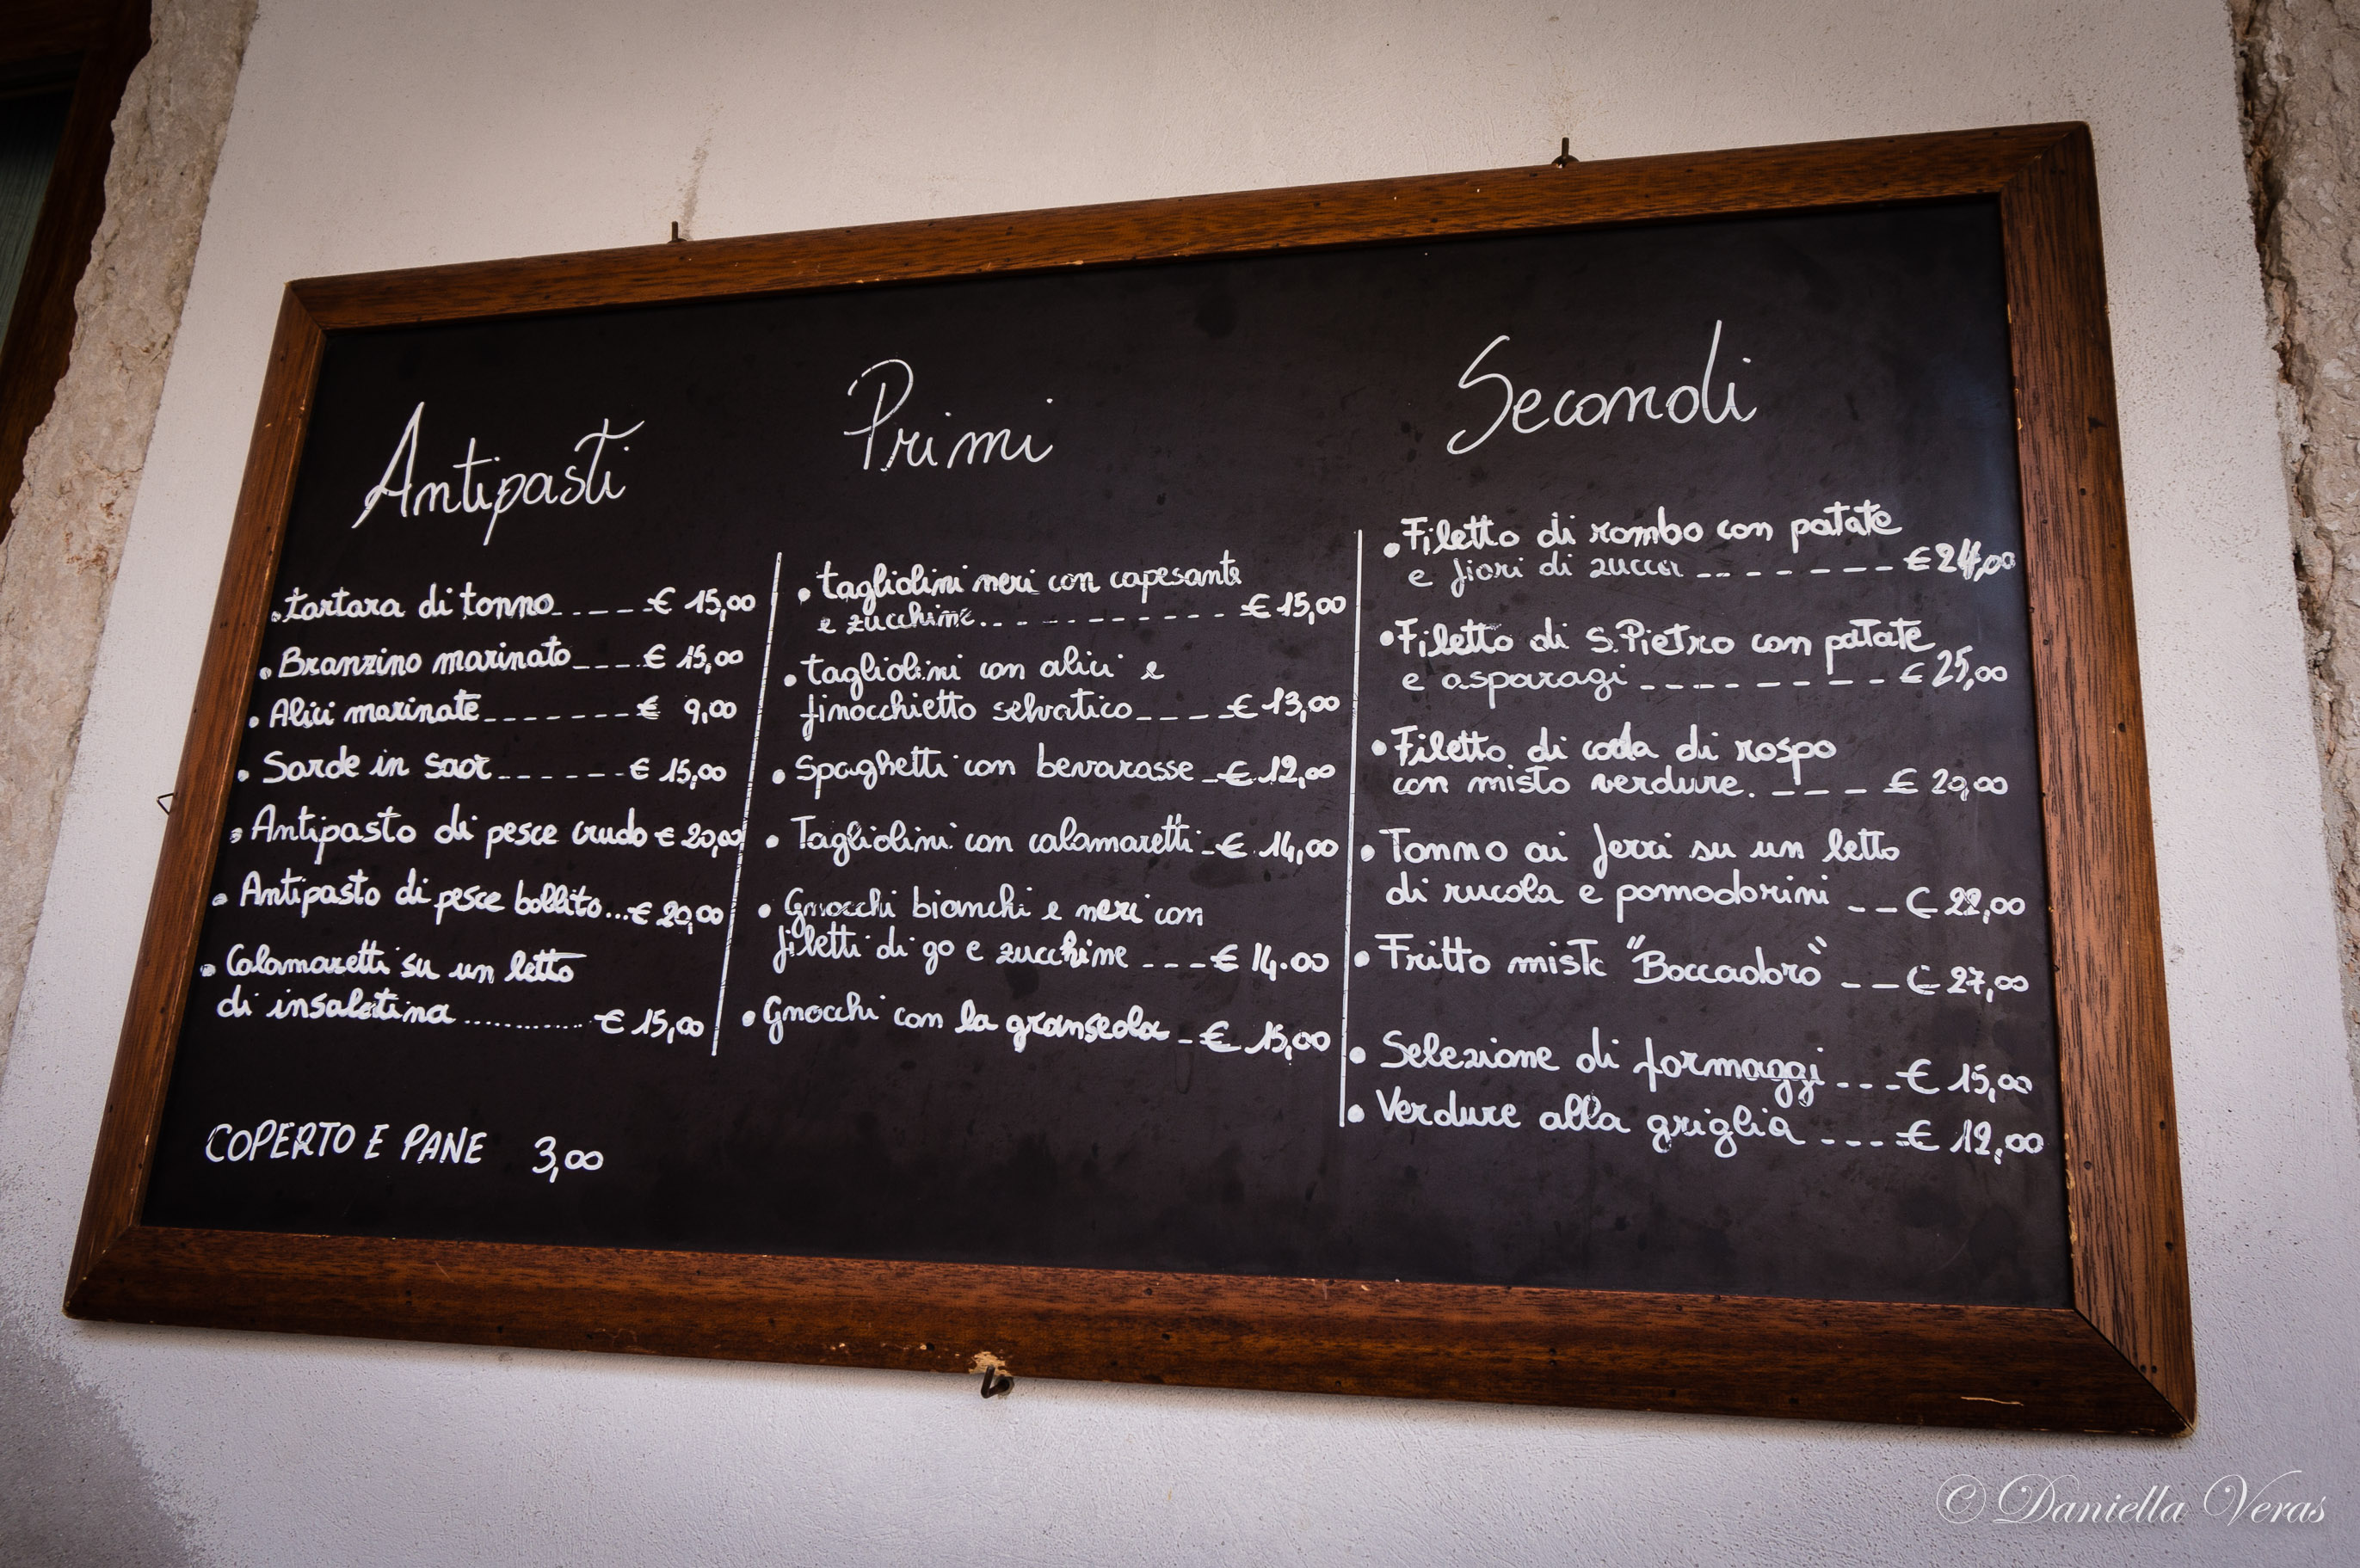 Antipasti
• tartara di tonno_____€ 15,00
• Branzino marinato____€ 15,00
• Alici marinate_______€ 9,00
• Sarde in saor______€ 15,00
• Antipasto di pesce crudo € 20,00
• Antipasto di pesce bollito...€ 20,00
• Calamaretti su un letto
di insalatina ............ € 15,00
COPERTO E PANE 3,00
Primi
• tagliolini neri con capesante
e zucchine.___________€ 15,00
• tagliolini con alici e
finocchietto selvatico____€ 13,00
• Spaghetti con bevarasse_€ 12,00
• Tagliolini con calamaretti_€ 14,00
• Gnocchi bianchi e neri con
filetti di go e zucchine ___€ 14.00
• Gnocchi con la granseola_€ 15,00
Secondi
• Filetto di rombo con patate
e fiori di zucca________€ 24,00
• Filetto di S.Pietro con patate
e asparagi_________€ 25,00
• Filetto di coda di rospo
con misto verdure.____€ 20,00
• Tonno ai ferri su un letto
di rucola e pomodorini __€ 22,00
• Fritto misto "Boccadoro" __€ 27,00
• Selezione di formaggi___€ 15,00
• Verdure alla griglia____€ 12,00
© Daniella Veras